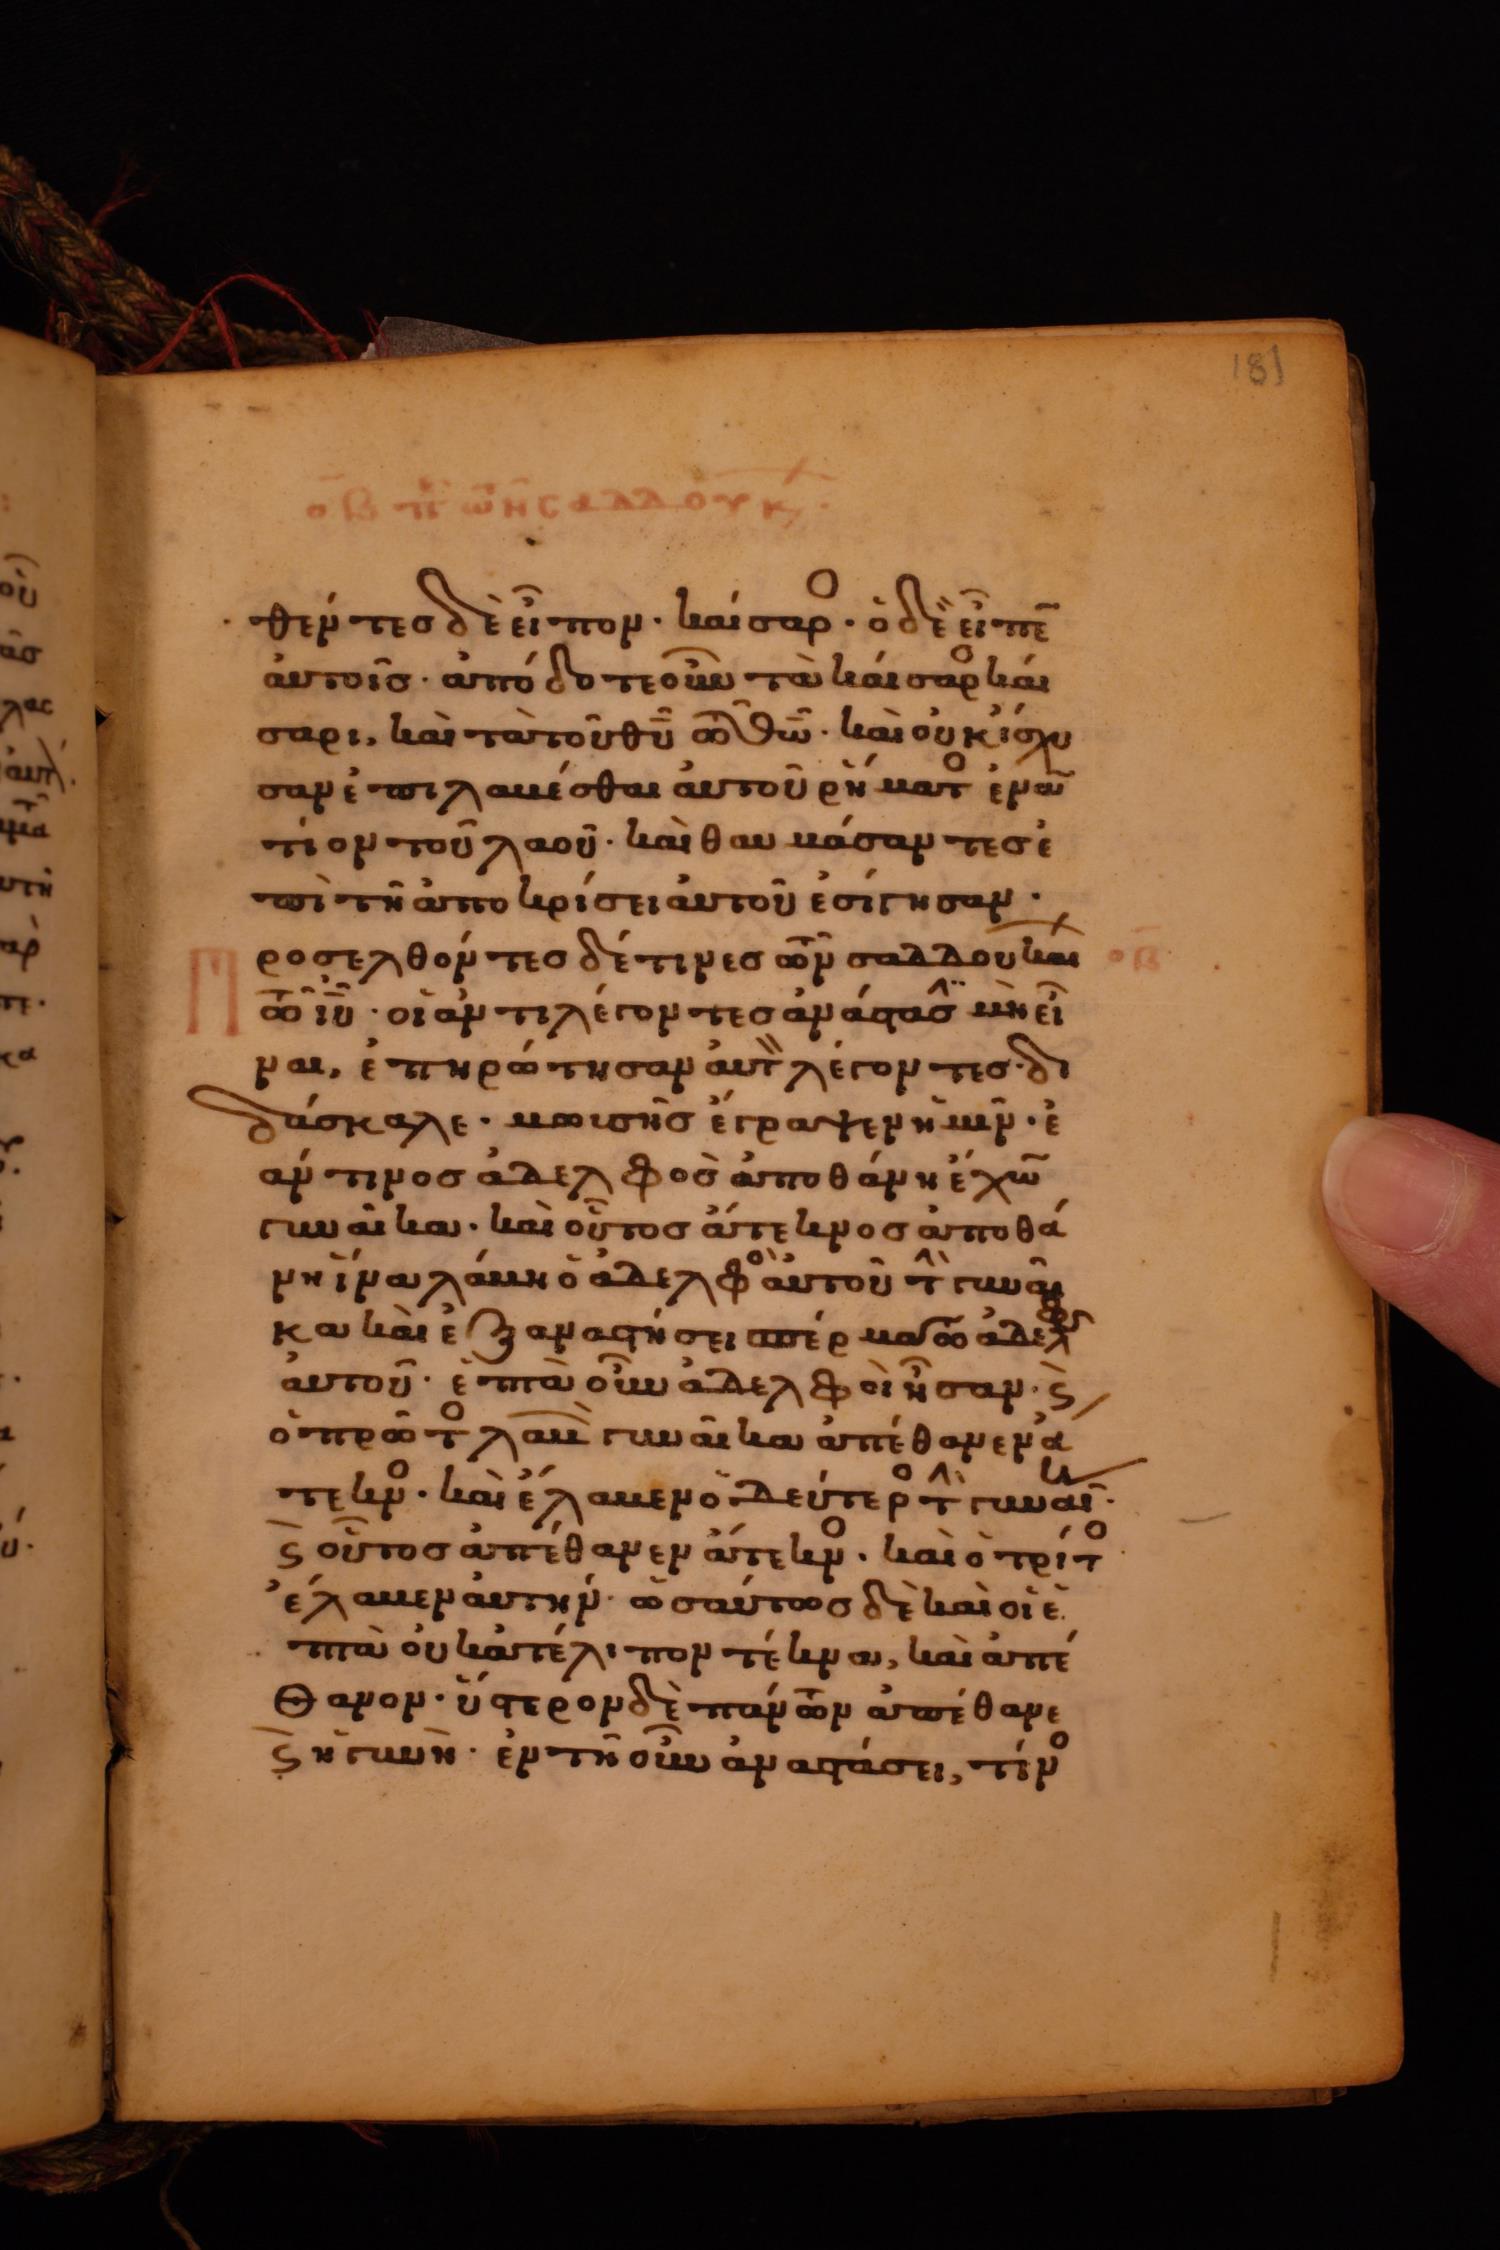 181
οβ π τῶν σαδδουκ
θέντες δὲ εἶπον· καίσαρο· ὁ δὲ εἶπε
ἀυτοῖς· ἀπόδοτε οὖν τὰ καίσαρο καί
σαρι, καὶ τὰ τοῦ θῦ τῶ θῶ· καὶ οὐκ ἴσχυ
σαν ἐπιλαβέσθαι ἀυτοῦ ῥήματο ἐναν
τίον τοῦ λαοῦ· καὶ θαυμάσαντες ἐ
πὶ τῆ ἀποκρίσει ἀυτοῦ ἐσίγησαν·
Προσελθόντες δέ τινες τῶν σαδδουκαι οβ
τῶν· οἱ ἀντιλέγοντες ἀνάστασ μὴ εἶ
ναι, ἐπηρώτησαν ἀυτ λέγοντες· δι
δάσκαλε· μωισῆς ἔγραψεν ἡμῖν· ἐ
άν τινος ἀδελφὸς ἀποθάνη ἔχων
γυναῖκα· καὶ οὗτος ἄτεκνος ἀποθά
νη ἵνα λάβη ὁ ἀδελφο ἀυτοῦ τ γυναῖ
κα καὶ ἐξαναστήσει σπέρμα τῶ ἀδελφῶ
ἀυτοῦ· ἑπτὰ οὖν ἀδελφοὶ ἦσαν· ϛ
ὁ πρῶτο λαβ γυναῖκα ἀπέθανεν ἄ
τεκνο· καὶ ἔλαβεν ὁ δεύτερο τ γυναῖκ·
ϛ οὗτος ἀπέθανεν ἄτεκνο· καὶ ὁ τρίτο
ἔλαβεν ἀυτήν· ὡσαύτως δὲ καὶ οἱ ἑ
πτὰ ὀυ κατέλιπον τέκνα, καὶ ἀπέ
θανον· ὕστερον δὲ πάντων ἀπέθανε
ϛ ἡ γυνὴ· ἐν τῆ οὖν ἀναστάσει, τίνο